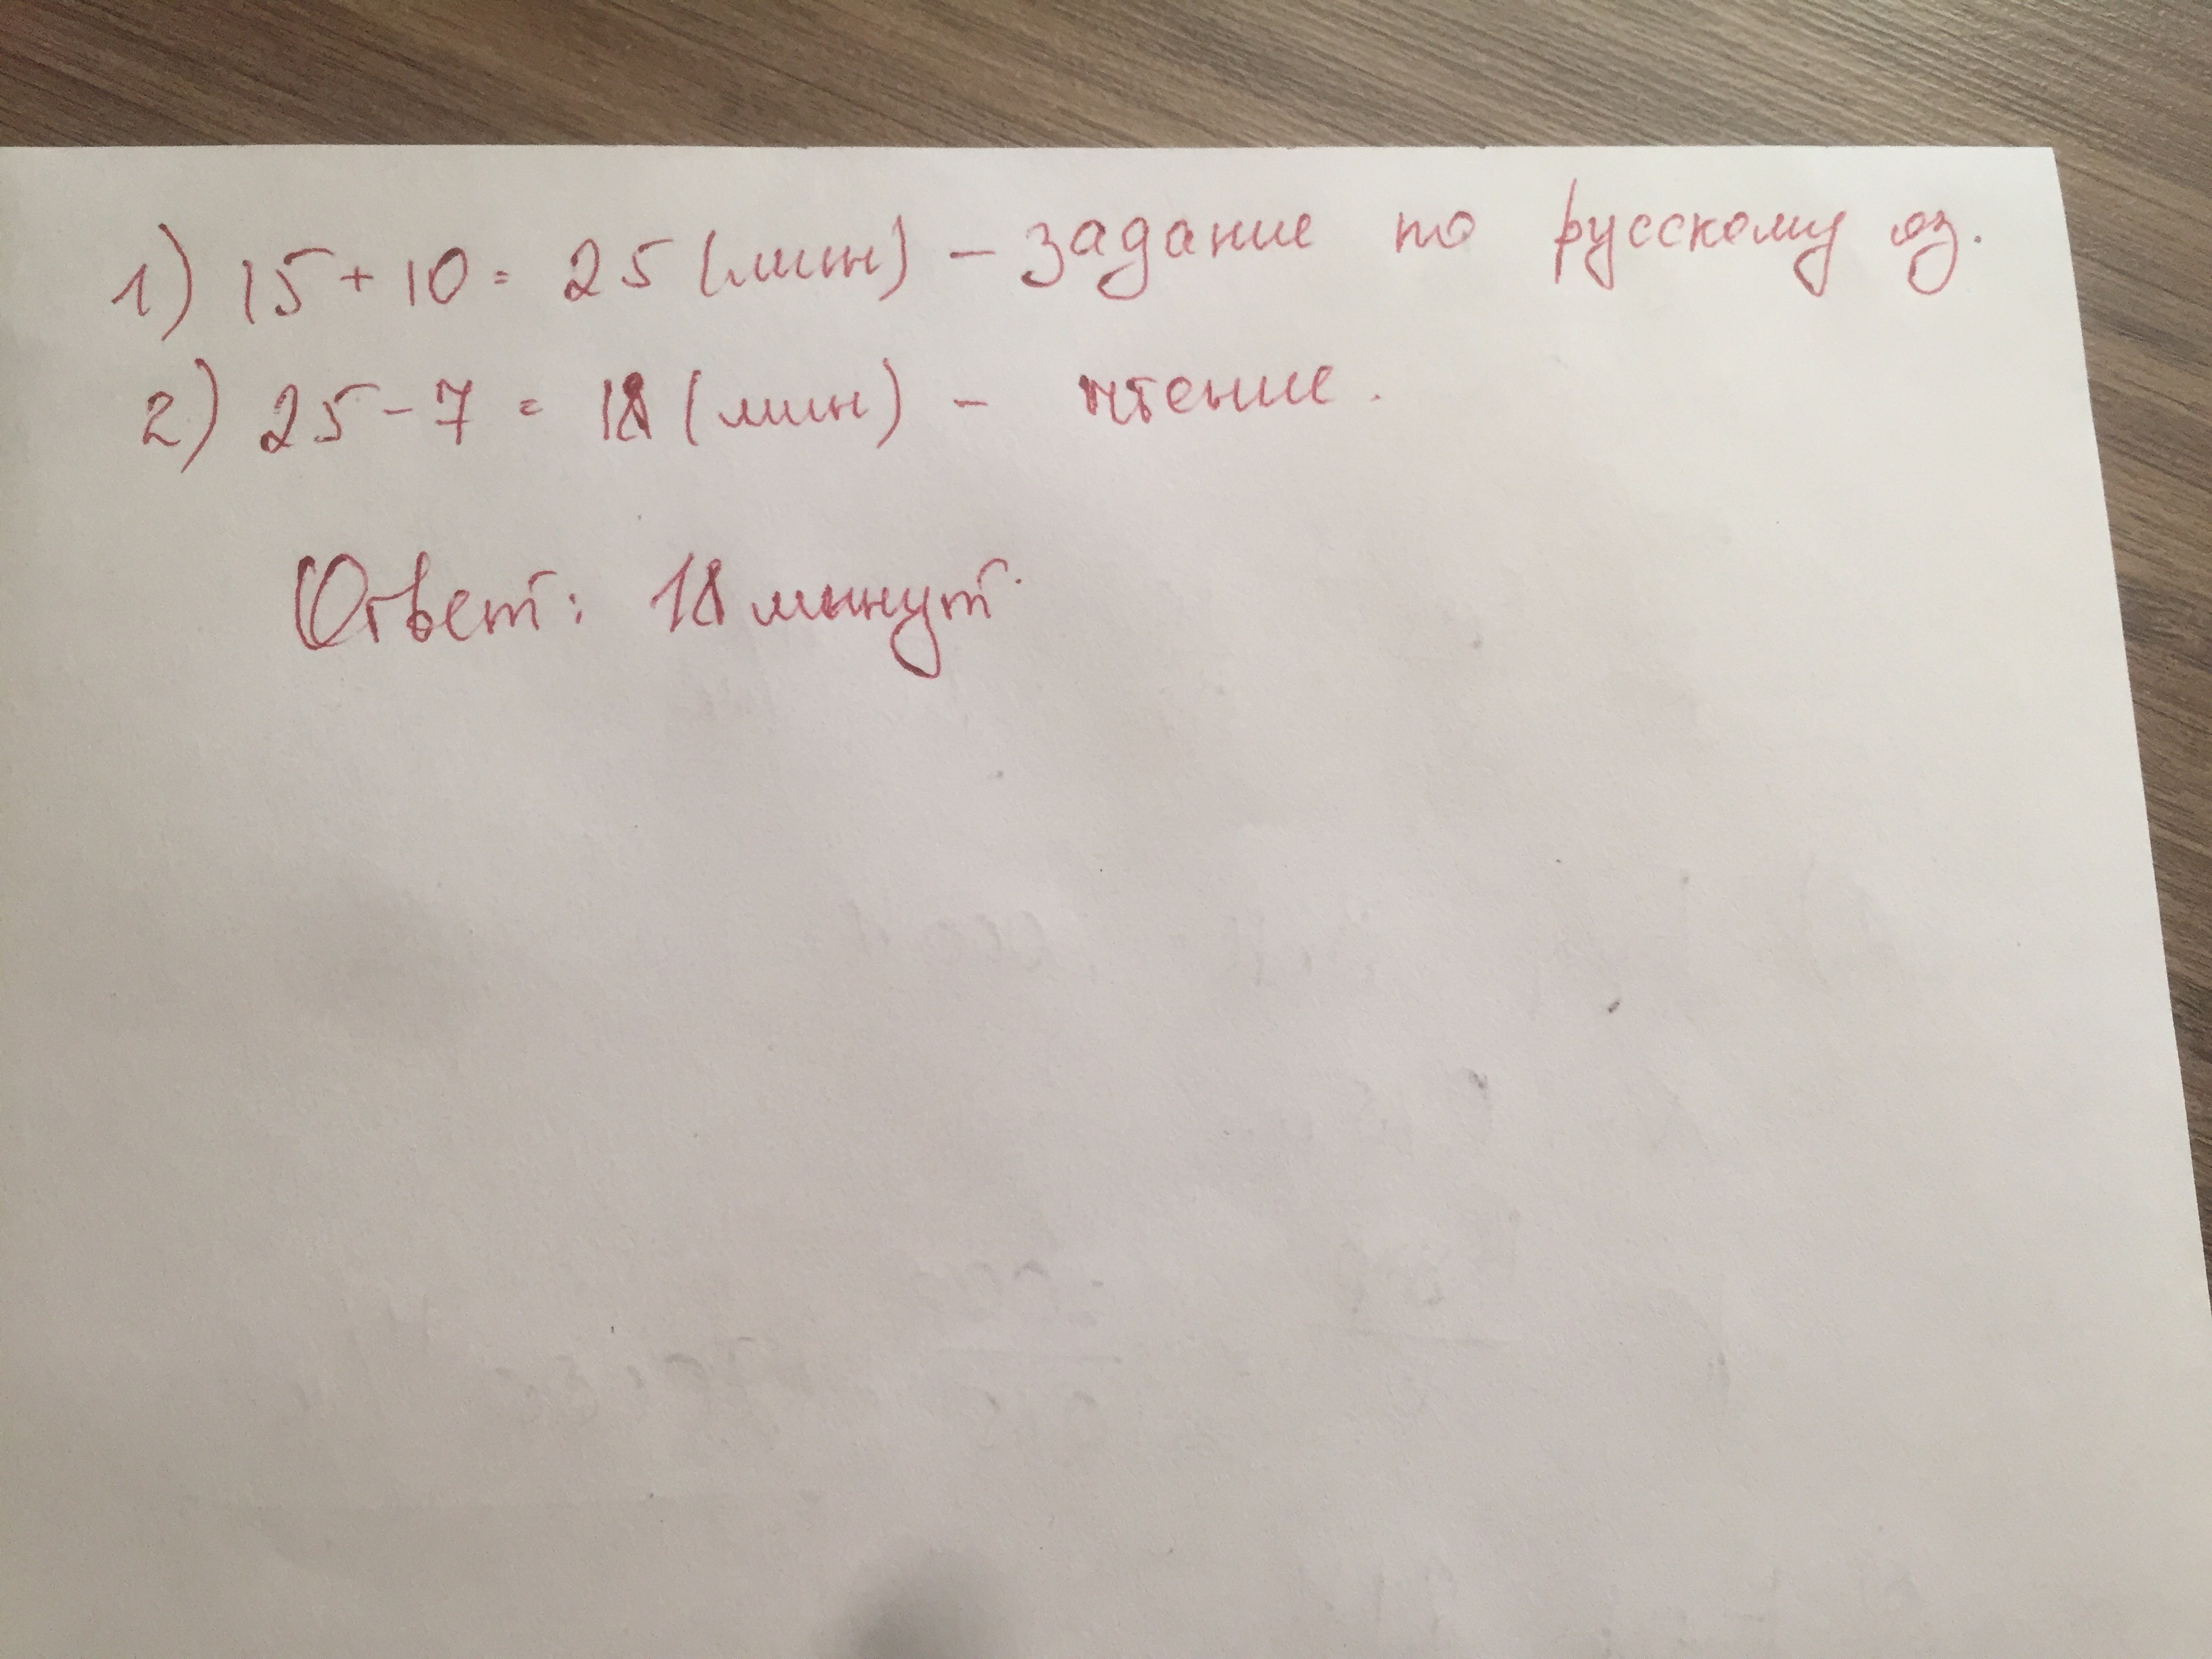 1) 15 + 10 = 25 (мин) – задание по русскому яз.
2) 25 – 7 = 18 (мин) – чтение.
Ответ: 18 минут.